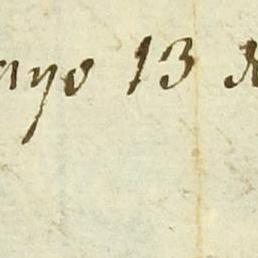 ayo 13 d